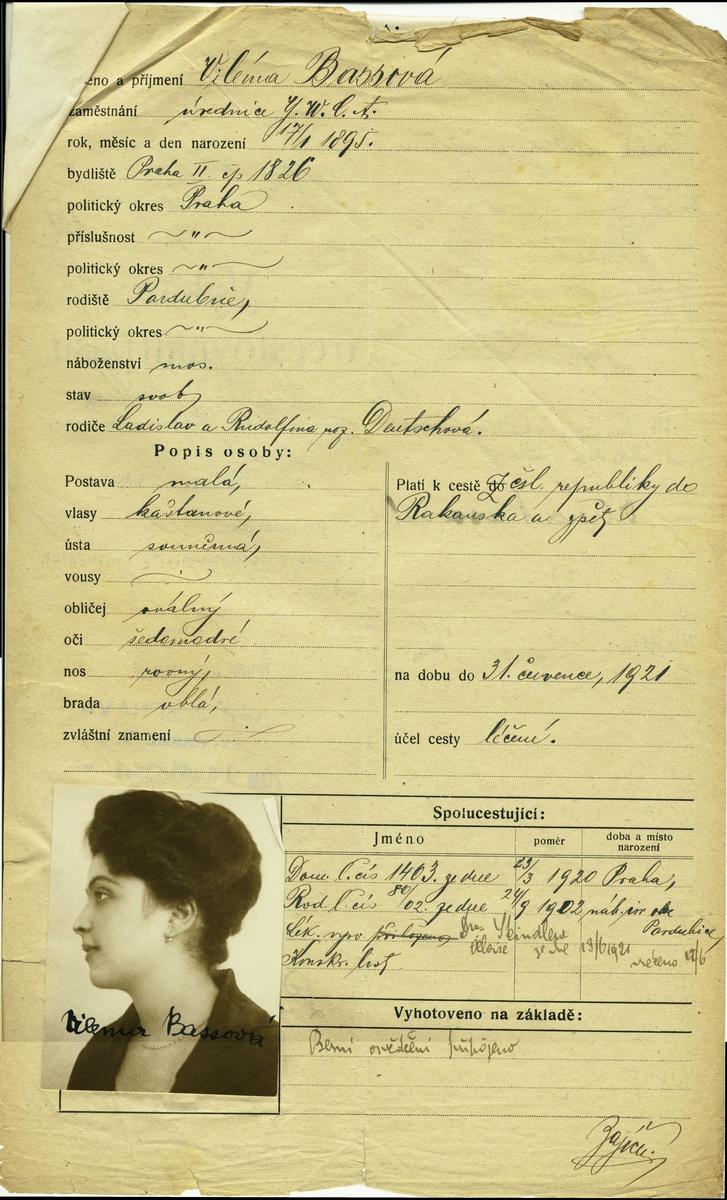 éno a příjmení Viléma Bassová
zaměstnání úřednice Y. W. C. A.
rok, měsíc a den narození 17/1 1895.
bydliště Praha II čp 1826
politický okres Praha
příslušnost — " —
politický okres — " —
rodiště Pardubice,
politický okres — " —
náboženství mos.
stav svob.
rodiče Ladislav a Rudolfina roz. Deutschová.
Popis osoby:
Postava malá,
vlasy kaštanové,
ústa souměrná,
vousy
obličej oválný
oči šedomodré
nos rovný,
brada oblá,
zvláštní znamení
Platí k cestě do z čsl. republiky do
Rakouska a zpět
na dobu do 31. července, 1921
účel cesty léčení.
Spolucestující:
Jméno poměr doba a místo narození
Dom. l. čís 1403. ze dne 23/3 1920 Praha,
Rod. l. čís 80/02. ze dne 24/9 1902 náb.
Pardubice,
Lék. vysv. přiloženo Dra ze dne 13/6 1921
17/6
Konskr. list
Vyhotoveno na základě:
Berní osvědčení připojeno
Vilema Bassová